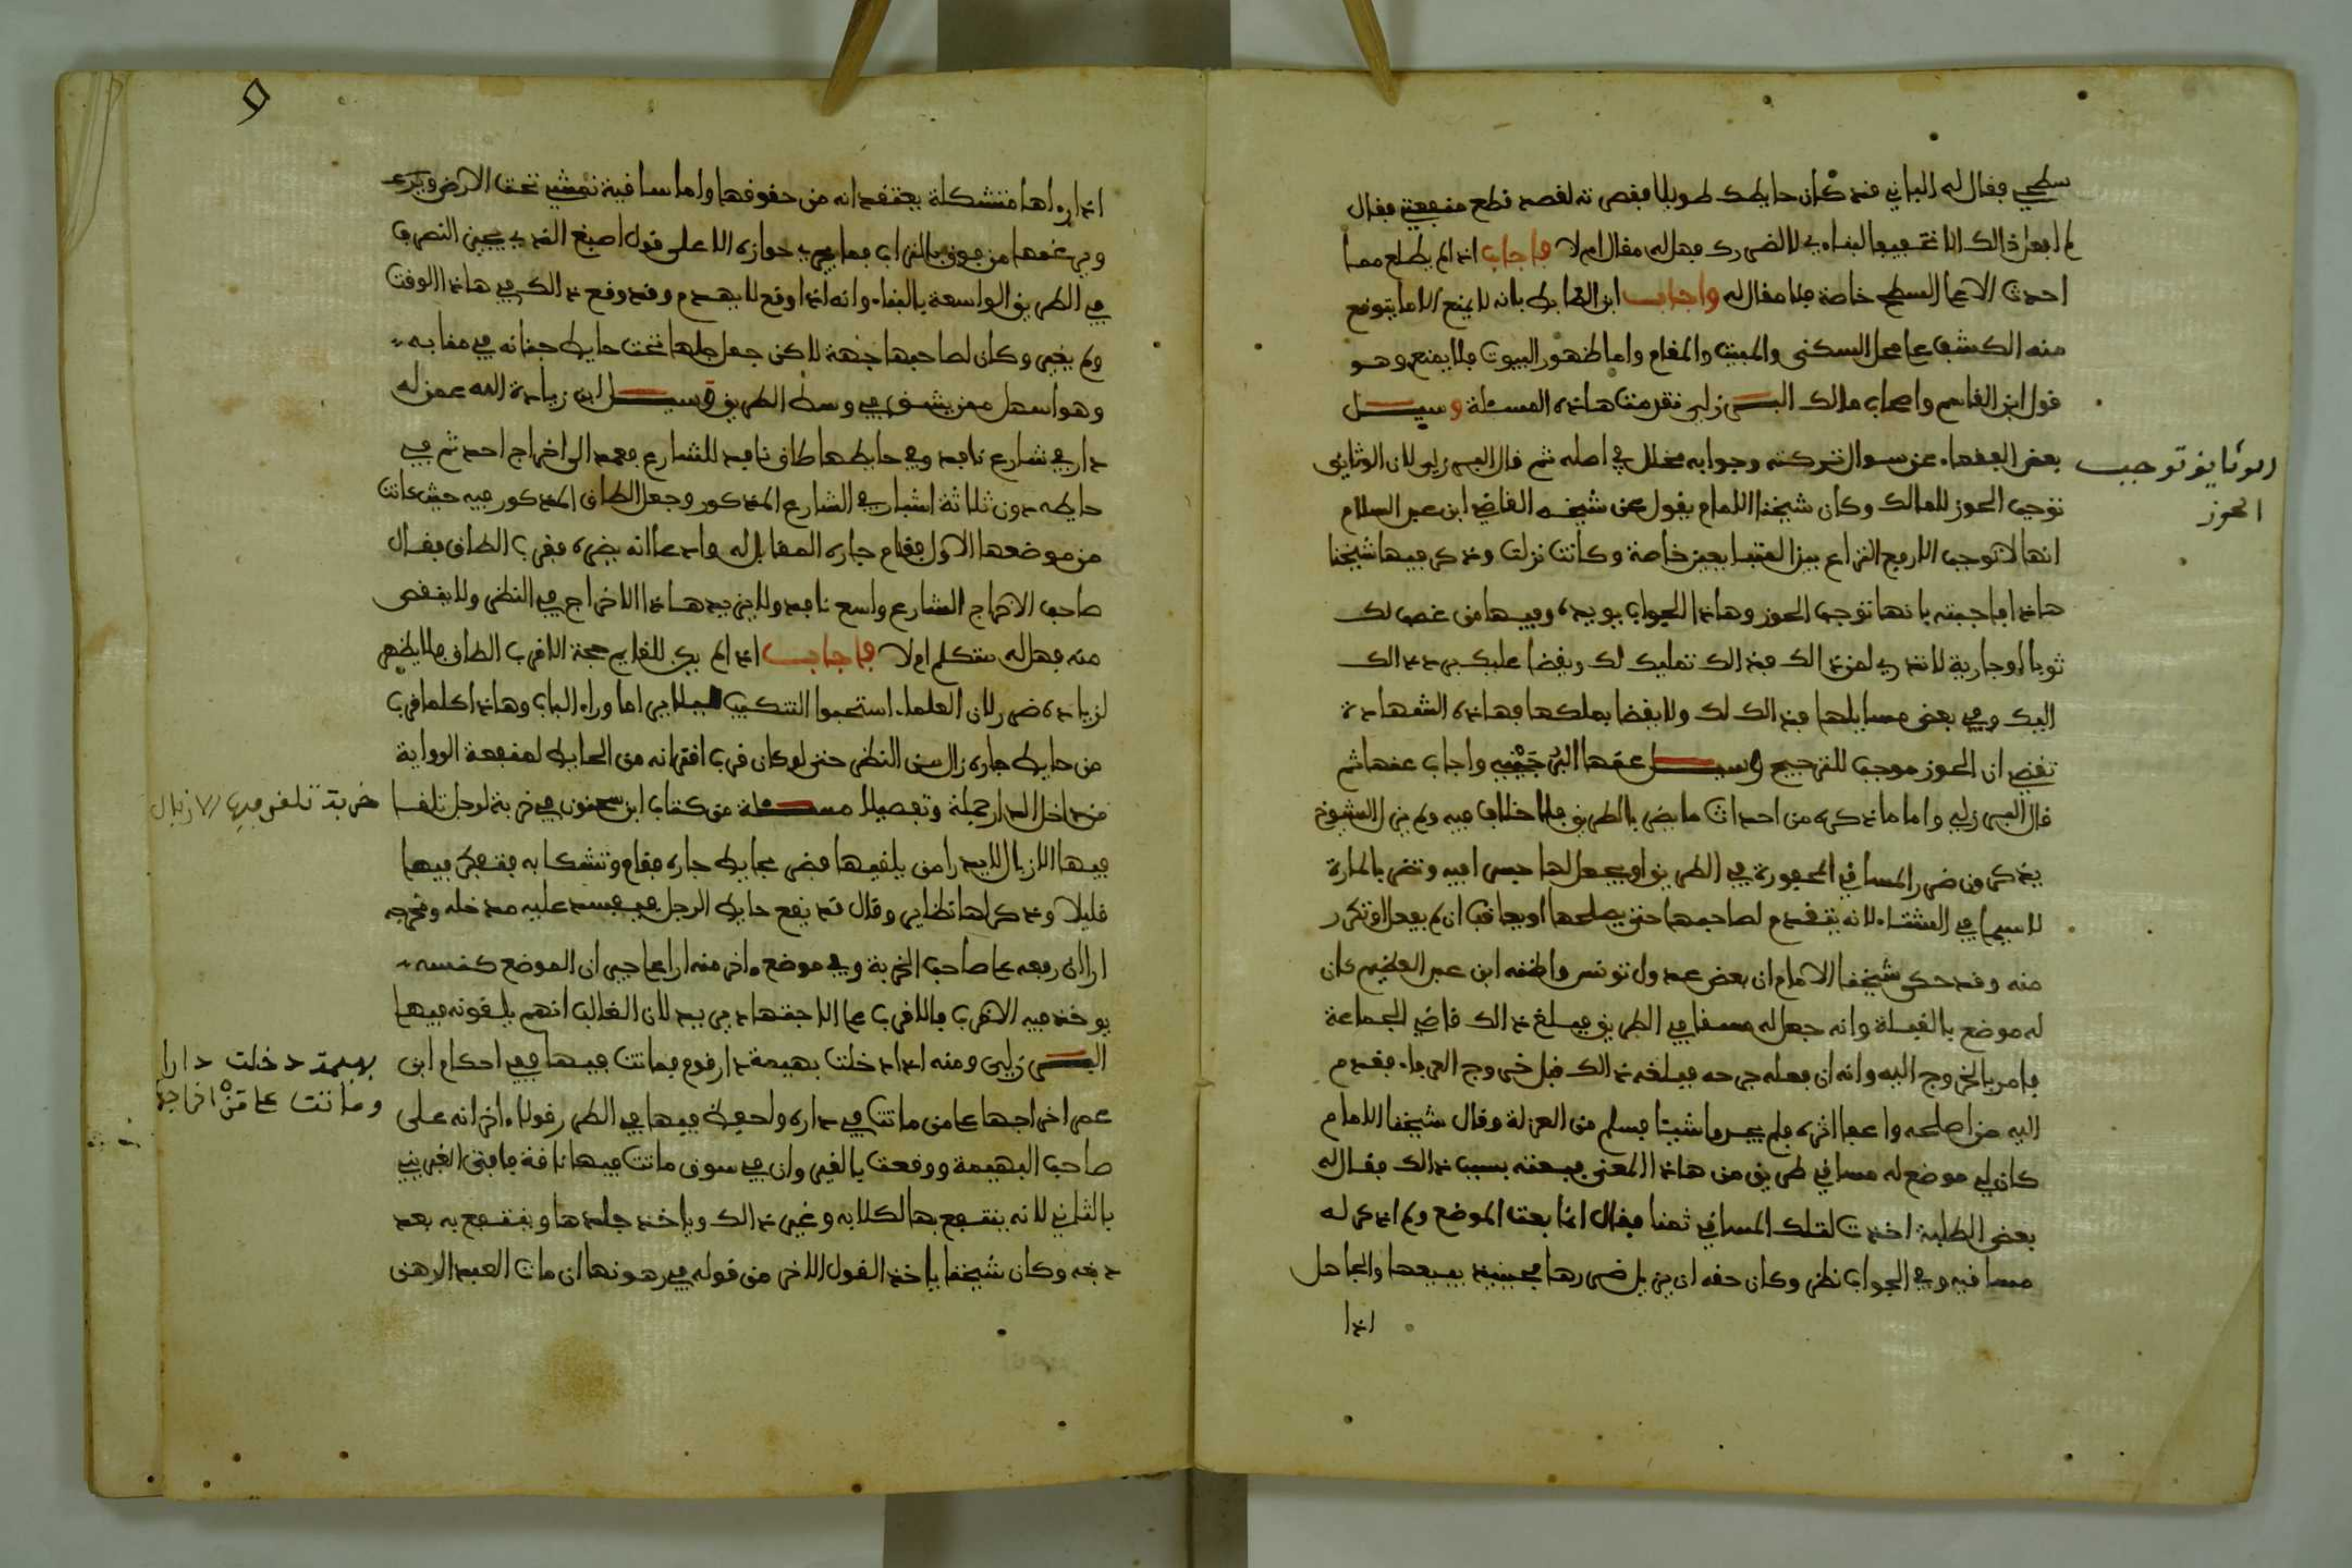 سطحي فقال له الباني قد كان حايطك طويلا فقصرته لقصد قطع منفعتي فقال
لم افعل ذالك الا تخفيفا لبناءي لا لضررك فهل له مقال ام لا فاجاب اذا لم يطلع مما
احدث الا على السطح خاصة فلا مقال له واجاب ابن الضابط بانه لا يمنع الا ما يتوقع
منه الكشف على محل السكنى والمبيت والمقام واما ظهور البيوت فلا يمنع وهو
قول ابن القاسم واصحاب مالك البرزلي تقدمت هاذه المسئلة وسيل
بعض الفقهاء عن سوال تركته وجوابه مخلل في اصله ثم قال البرزلي لان الوثايق
الوثايق توجب
الحوز
توجب الحوز للمالك وكان شيخنا الامام يقول عن شيخه القاضي ابن عبد السلام
انها لا توجب الا رفع النزاع بين المتبايعين خاصة وكانت نزلت وذكر فيها شيخنا
هاذا فاجبته بانها توجب الحوز وهاذا الجواب يويده وفيها من غصب لك
ثوبا او جارية لا تدري لمن ذالك فذالك تمليك لك ويقضا عليك برد ذالك
اليك وفي بعض مسايلها فذالك لك ولا يقضا بملكها فهاذه الشهادة
تقتضي ان الحوز موجب للترجيح وسيل عنها البرجيني واجاب عنها ثم
قال البرزلي واما ما ذكره من احداث ما يضر بالطريق فلا خلاف فيه ولم يزل الشيوخ
يذكرون ضرر المساقي المحفورة في الطريق او يجعل لها حبس افيه وتضر بالمارة
لا سيما في الشتاء لانه يتقدم لصاحبها حتى يصلحها او يعاقب ان لم يفعل او تكرر
منه وقد حكى شيخنا الامام ان بعض عدول تونس واظنه ابن عبد العظيم كان
له موضع بالقبلة وانه جعل له مسقا في الطريق فبلغ ذالك قاضي الجماعة
فامر بالخروج اليه وانه ان فعله جرحه فبلغه ذالك قبل خروج العرفاء فقدم
اليه من اصلحه واعفا اثره فلم يجدوا شيئا فسلم من العزلة وقال شيخنا الامام
كان لي موضع له مساقي طريق من هاذا المعنى فبعته بسبب ذالك فقال له
بعض الطلبة اخذت لتلك المساقي ثمنا فقال انما بعت الموضع ولم اذكر له
مساقيه وفي الجواب نظر وكان حقه ان يزيل ضررها فحينيذ يبيعها والجاهل
اذا
و
اذا رءاها متشكلة يعتقد انه من حقوقها واما ساقية تمشي تحت الارض ويردع
ويرغمها من فوق بالتراب فما يجري جوازه الا على قول اصبغ الذي يجيز التصرف
في الطريق الواسعة بالبناء وانه اذا وقع لا يهدم وقد وقع ذالك في هاذا الوقت
ولم يغير وكان لصاحبها جهة لاكن جعل جلها تحت حايط جنانه في مقابه
وهو اسهل ممن يشق في وسط الطريق وسيل ابن زيادة الله عمن له
دار في شارع نافد وفي حايطها طاق نافد للشارع فعمد الى اخراج احدثه في
حايطه دون ثلاثة اشبار في الشارع المذكور وجعل الطاق المذكور فيه حيث كانت
من موضعها الاول فقام جاره المقابل له وادعا انه يضره فقرب الطاق فقال
صاحب الاخراج الشارع واسع نافد ولا يزيد هاذا الاخراج في النظر ولا ينقص
منه فهل له متكلم ام لا فاجاب اذا لم يكن للقايم حجة الا قرب الطاق فلا يظهر
لزيادة ضرر لان العلماء استحبوا التنكيب ليلا يرى ما وراء الباب وهاذا كلما قرب
من حايط جاره زال سنى النظر حتى لو كان قرب اقترانه من الحايط لمنفعة الرواية
من داخل الدار جملة وتفصيلا مسئلة من كتاب ابن سحنون في خربة لرجل تلقا
خربة تلقى فيها الازبال
فيها الازبال لا يدرا من يلقيها فضر بحايط جاره فقام وتشكا به فتفكر فيها
قليلا وذكر لها نظاير وقال قد يقع حايط الرجل فيفسد عليه مدخله ومخرجه
ارا ان رفعه على صاحب الخربة وفي موضع ءاخر منه ارا على جيران الموضع كنسه
يوخذ فيه الاقرب فالاقرب على الاجتهاد يريد لان الغالب انهم يلقونه فيها
البرزلي ومنه اذا دخلت بهيمة دار قوم فماتت فيها ففي احكام ابن
بهيمة دخلت دارا
وماتت على من اخراجها
عمر اخراجها على من ماتت في داره ولحفة فيها في الطرر قولا ءاخر انه على
صاحب البهيمة ووقعت بالقيروان في سوق ماتت فيها ناقة فافتى الغبريني
بالثاني لانه ينتفع بها لكلابه وغير ذالك وياخذ جلدها وينتفع به بعد
دبغه وكان شيخنا ياخذ القول الاخر من قوله في رهونها ان مات العبد الرهن